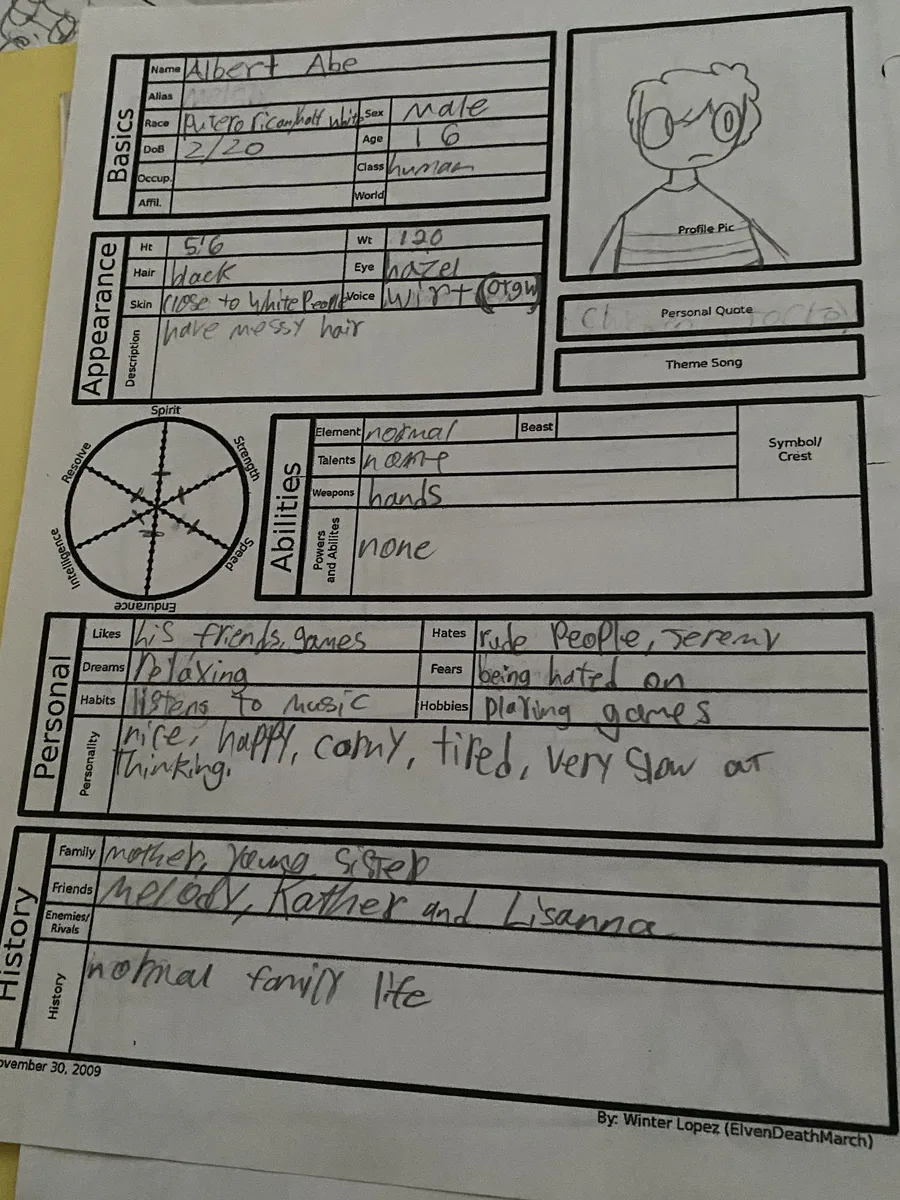 Basics
Name Albert Abe
Alias
Race Putero rican/half white Sex Male
DoB 2/20 Age 16
Occup. Class human
Affil. World
Profile Pic
Appearance
Ht 5'6 Wt 120
Hair black Eye hazel
Skin close to white People Voice wirt (Orgw
Description have messy hair
Personal Quote
Theme Song
Spirit
Strength
Speed
Endurance
Intelligence
Resolve
Abilities
Element normal Beast
Talents
Weapons hands
Powers and Abilites none
Symbol/
Crest
Personal
Likes his friends, games Hates rude People, Jeremy
Dreams relaxing Fears being hated on
Habits listens to music Hobbies playing games
Personality nice, happy, corny, tired, very slow at
thinking.
History
Family mother, young sister
Friends Melody, Kather and Lisanna
Enemies/
Rivals
History normal family life
ovember 30, 2009
By: Winter Lopez (ElvenDeathMarch)